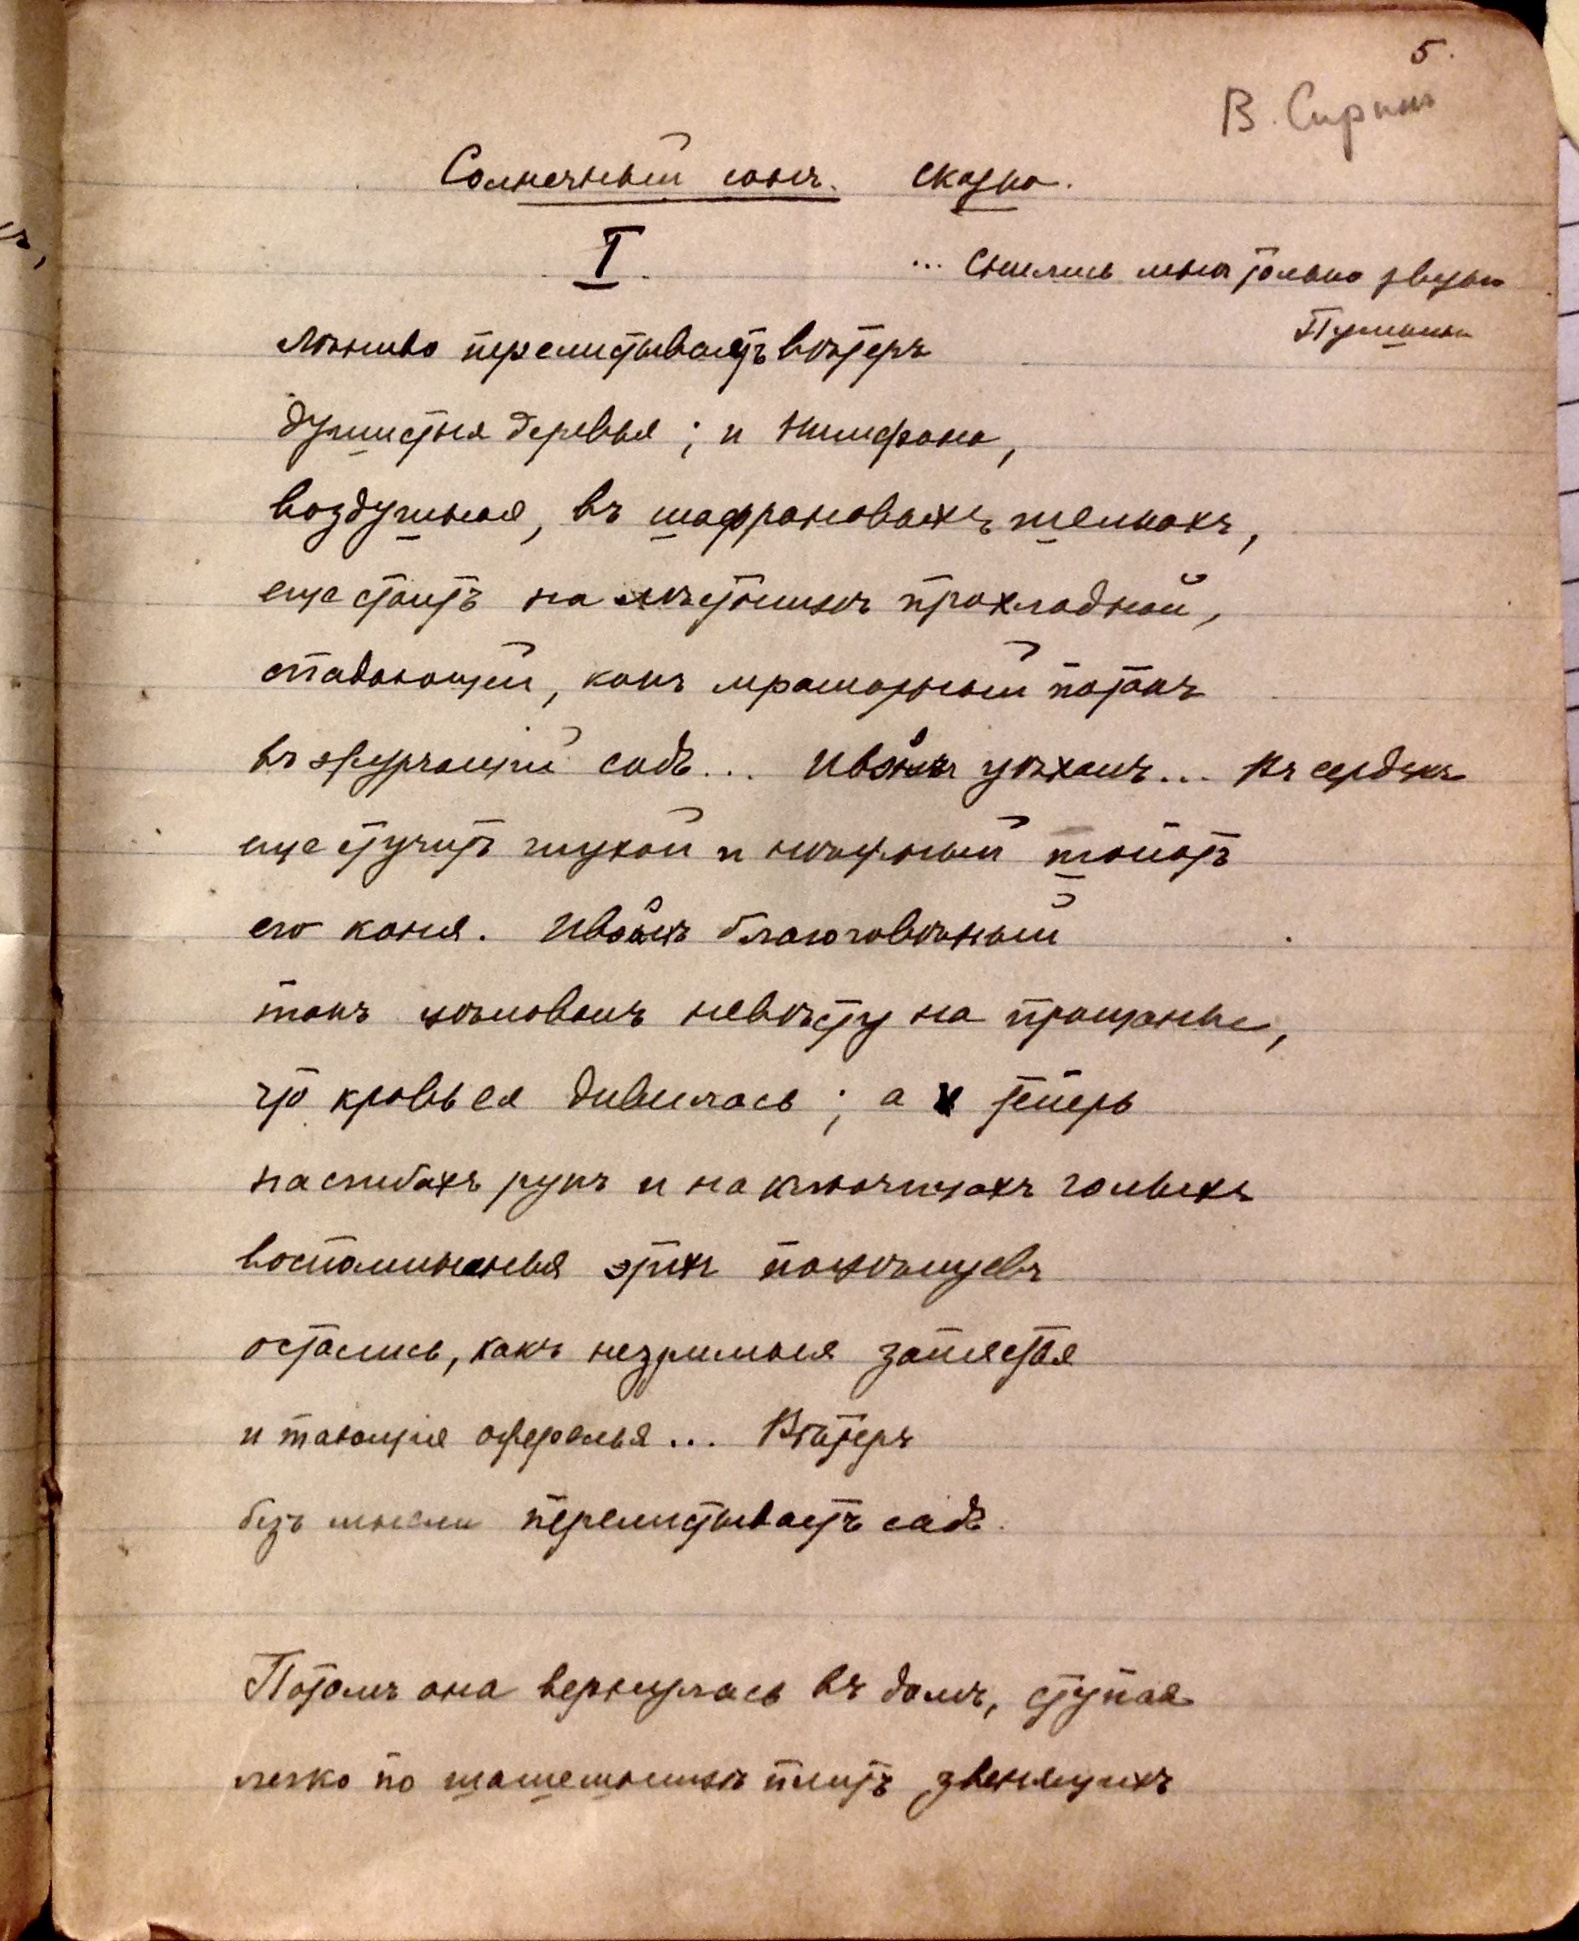 5.
В. Сиринъ
Солнечный сонъ. сказка.
I.
... Снились мнѣ только звуки
Пушкинъ
Лѣниво перелистываетъ вѣтеръ
душистыя деревья; и Нимфана,
воздушная, въ шафрановыхъ шелкахъ,
еще стоитъ на лѣстницѣ прохладной,
спадающей, какъ мраморный потокъ
въ журчащiй садъ... Ивэйнъ уѣхалъ... Въ сердцѣ
еще стучитъ глухой и нѣжный топотъ
его коня. Ивэйнъ благоговѣйный
такъ цѣловалъ невѣсту на прощанье,
что кровь ея дивилась; а теперь
на сгибахъ рукъ и на ключицахъ голыхъ
воспоминанья этихъ поцѣлуевъ
остались, какъ незримыя запястья
и тающiя ожерелья... Вѣтеръ
безъ мысли перелистываетъ садъ.
Потомъ она вернулась въ домъ, ступая
легко по шашешницѣ плитъ звенящихъ